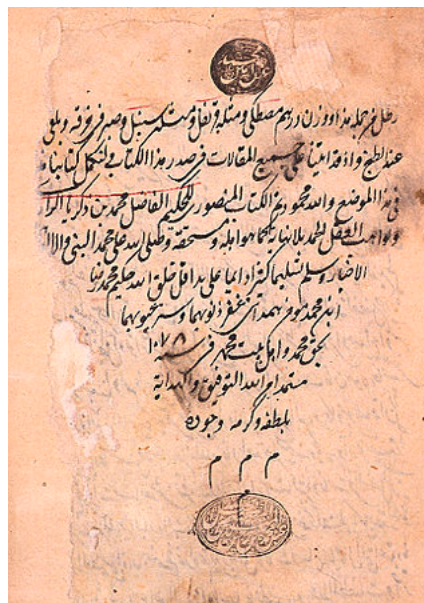 رطل خمر يجمله هذا ووزن درهم مصطكى ومثله قرنفل ومثله سنبل وصير فى خرقة ويلقى
عند الطبخ واذ قد اتينا على جميع المقالات فى صدر هذا الكتاب فلنكمل كتابنا
فى هذا الموضع والله محمود تم الكتاب المنصورى للحكيم الفاضل محمد بن زكريا
ولواهب العقل الحمد بلانهاية كما هو اهله ومستحقه وصلى الله على محمد النبى واله
الاخيار وسلم تسليما كثيرا دايما على يد اقل خلق الله حكيم محمد رضا
ابن محمد همدانى غفر ذنوبهما وستر عيوبهما
بحق محمد واهل بيت محمد فى سنه ١٠٧٨
مستمدا من الله التوفيق والهداية
بلطفه وكرمه وجوده
م م م